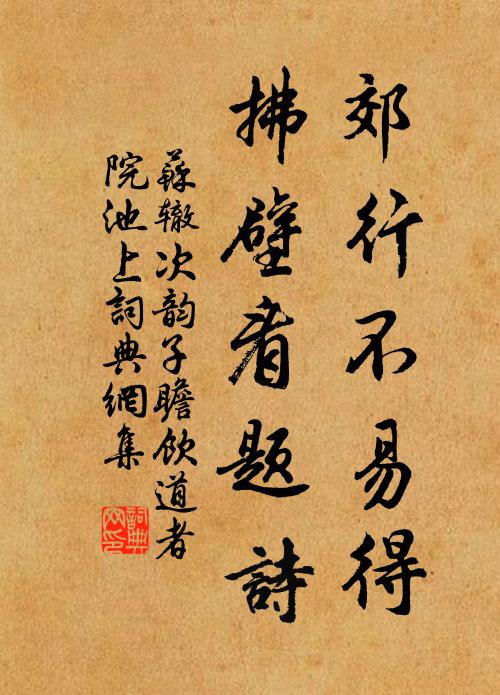 郊行不易得
拂壁看题詩
蘇辙次韵子瞻飲道者
院池上詞典網集
詞典